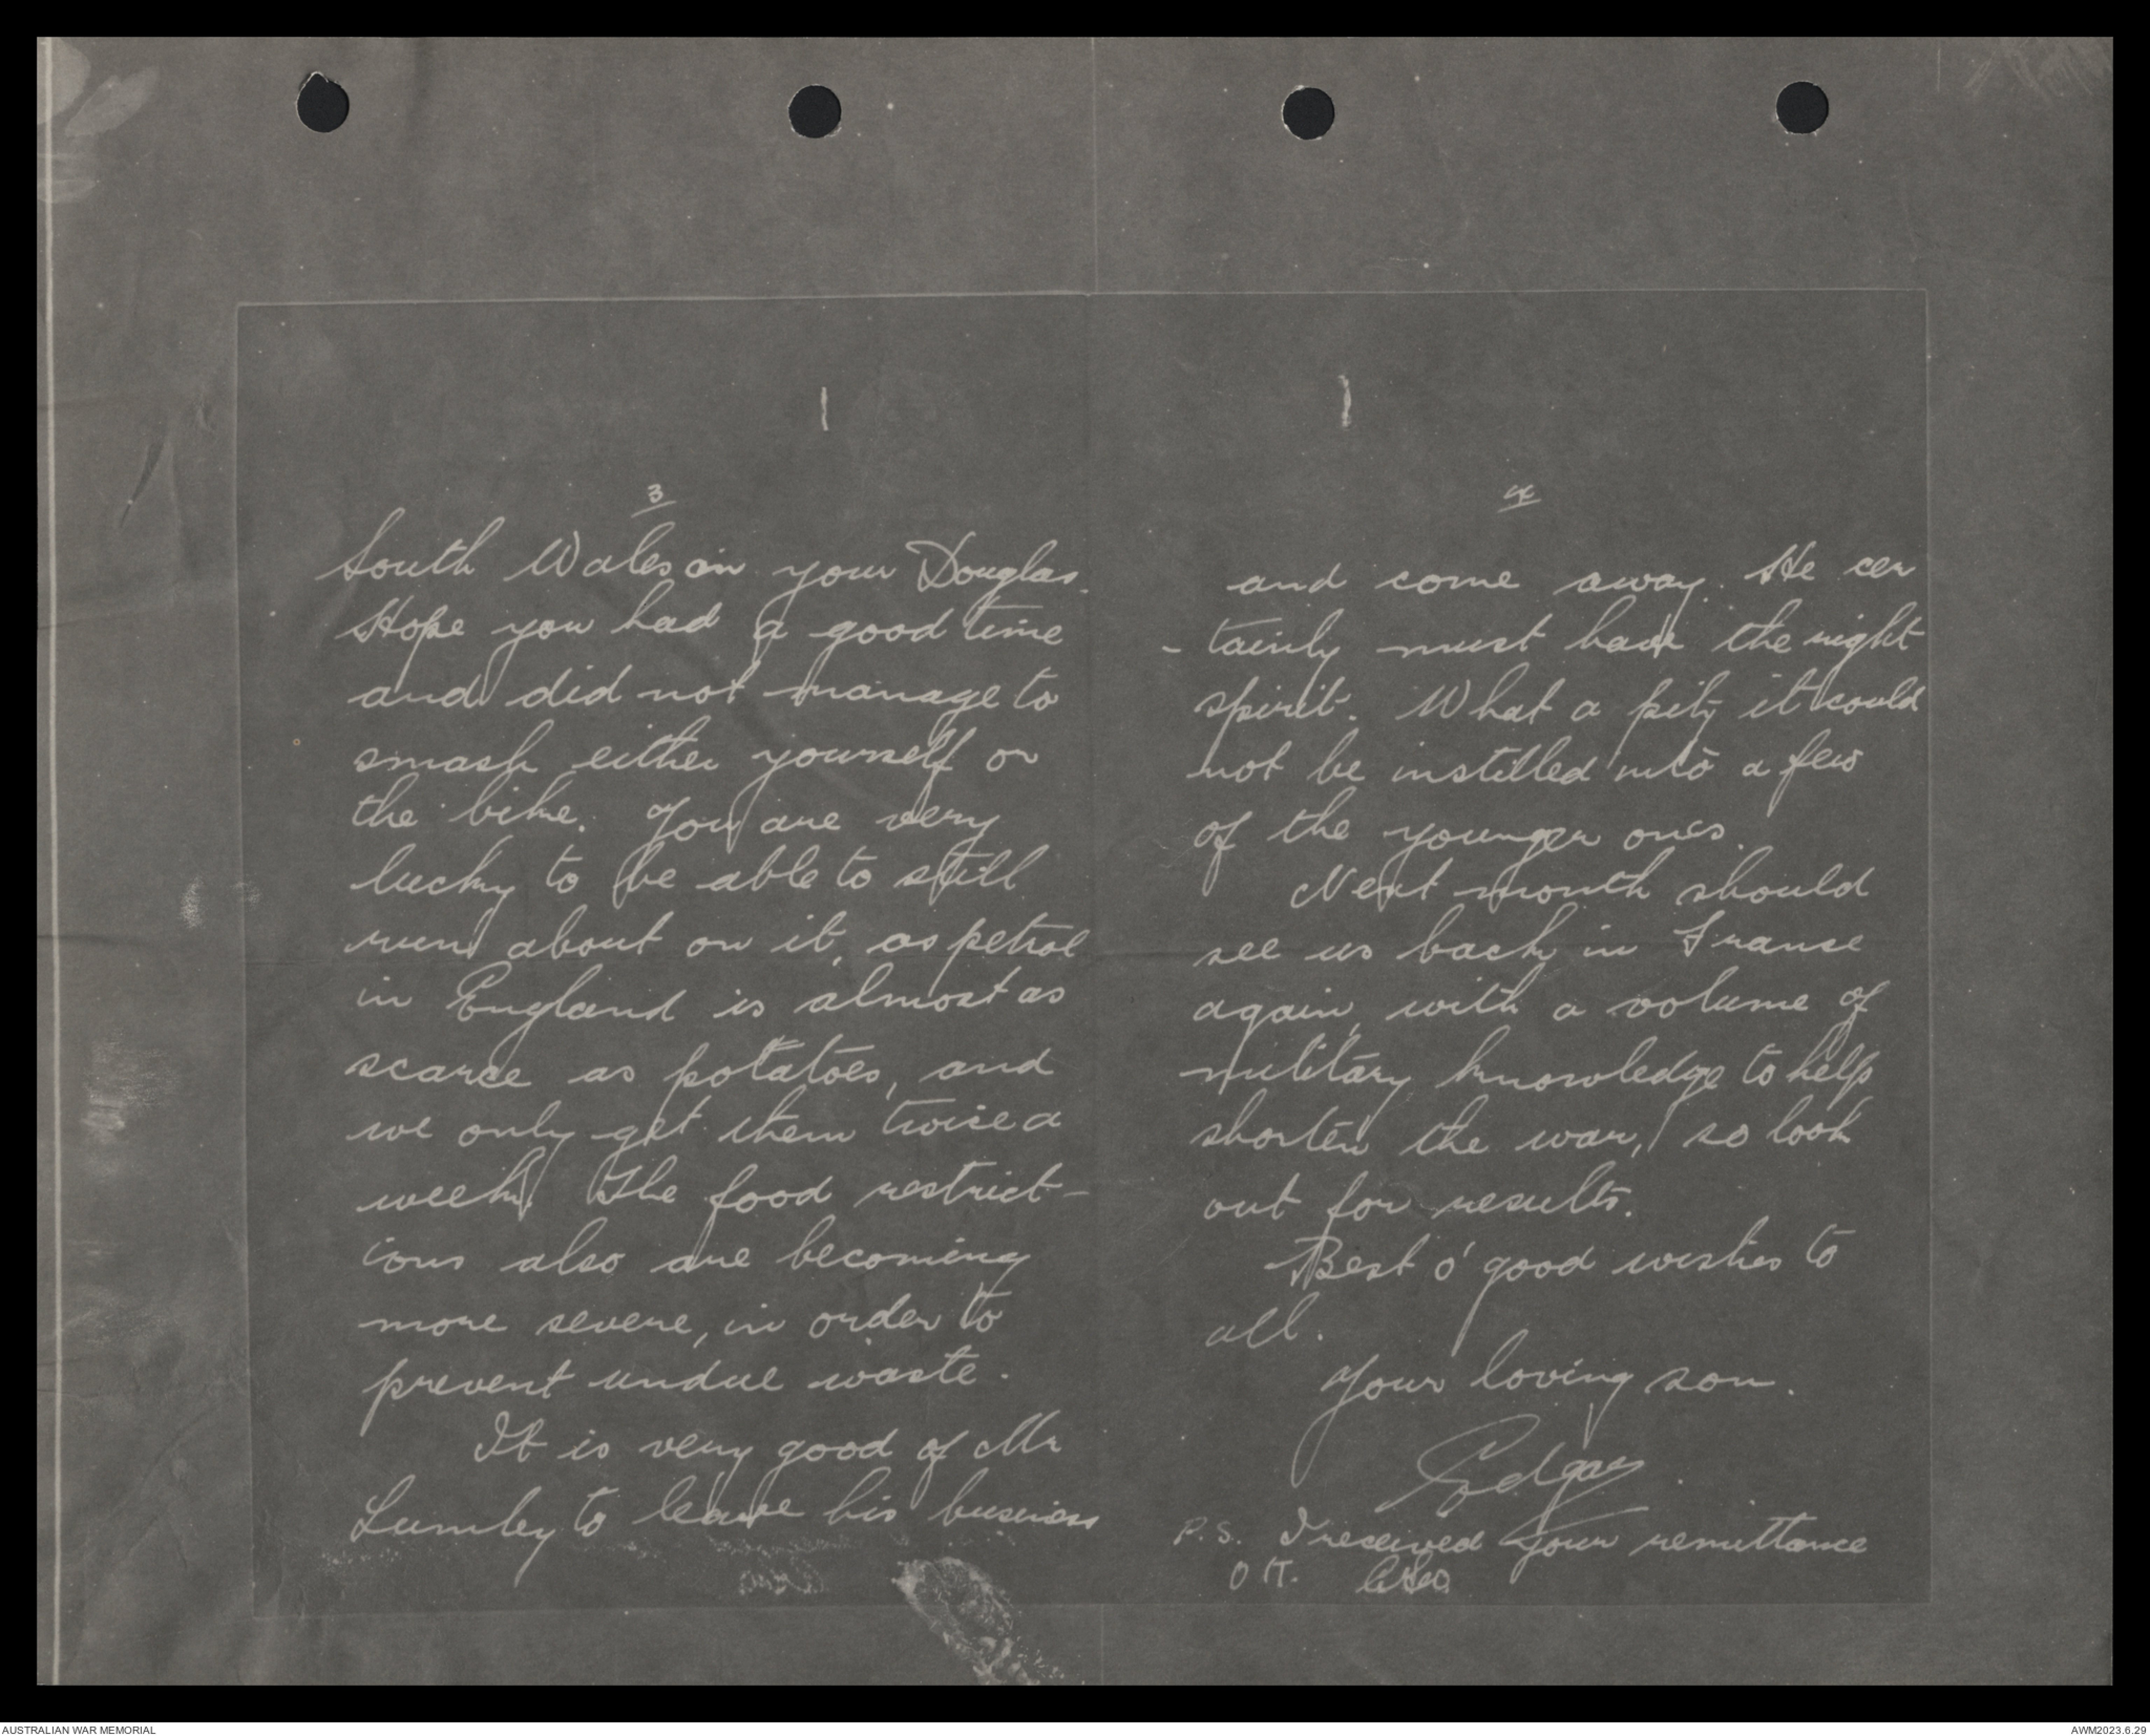 3
South Wales on your Douglas.
Hope you had a good time
and did not manage to
smash either yourself or
the bike. You are very
lucky to be able to still
run about on it, as petrol
in England is almost as
scarce as potatoes, and
we only get them twice a
week. The food restrict-
ions also are becoming
more severe, in order to
prevent undue waste.
It is very good of Mr
Lumley to leave his business
4
and come away. He cer
- tainly must have the right
spirit. What a pity it could
not be instilled into a few
of the younger ones.
Next month should
see us back in France
again, with a volume of
military knowledge to help
shorten the war, so look
out for results.
Best o' good wishes to
all.
Your loving son.
Edgar
P.S. I received your remittance
O.K.
AUSTRALIAN WAR MEMORIAL
AWM2023.6.29